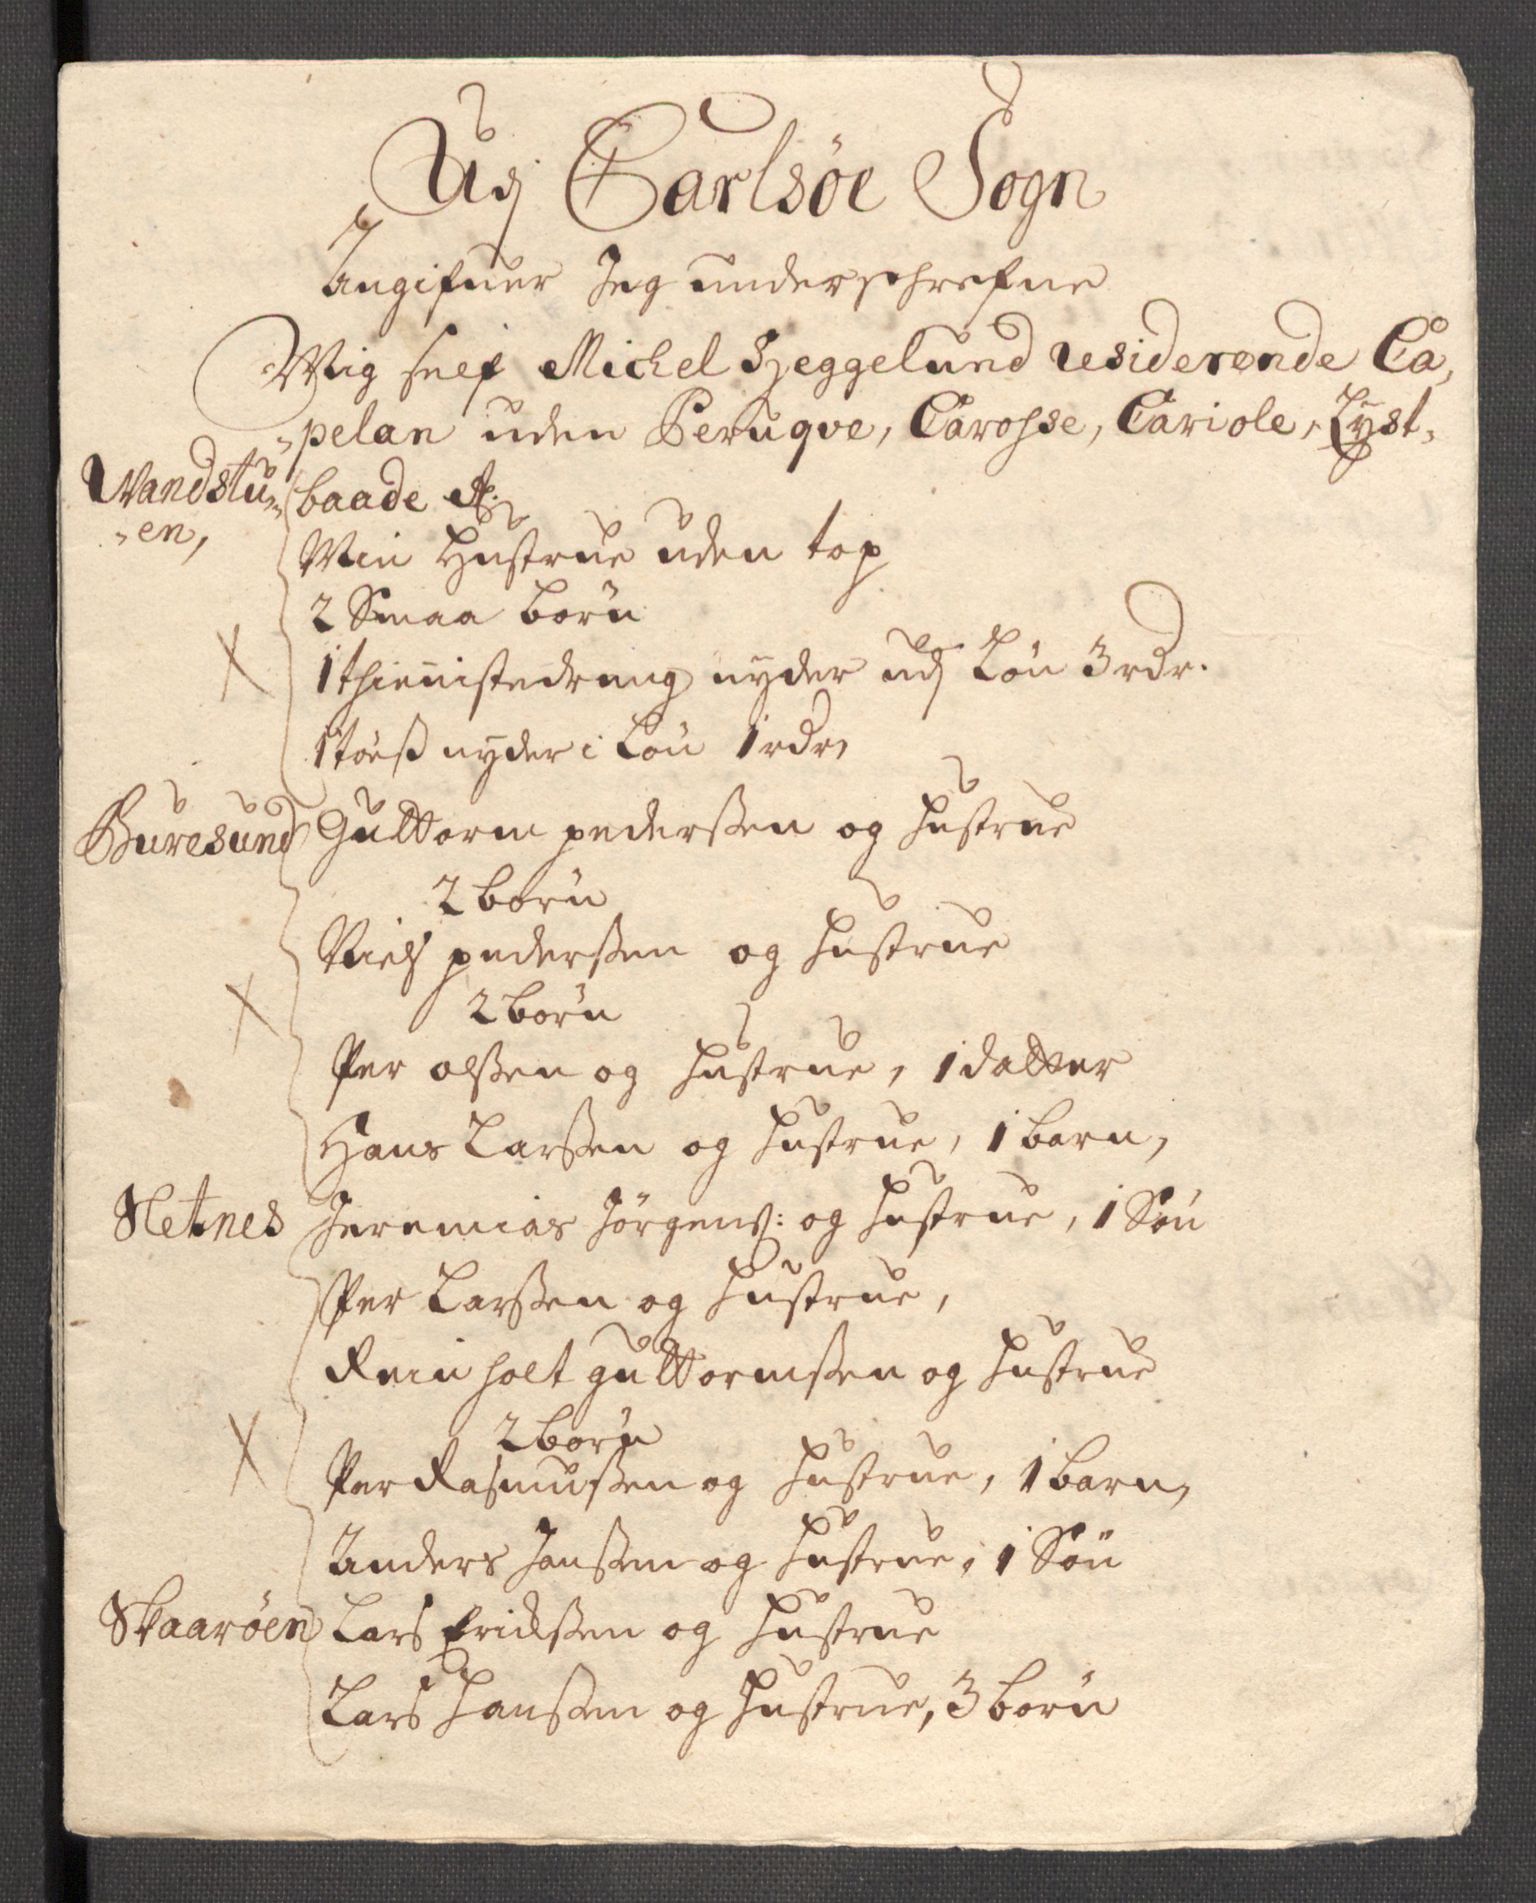 Udj Carlsöe Sogn
Angifuer Jeg underschrefne
Mig self Michel Heggelund residerende Ca,
"pelan uden Peruqve, Carosse, Cariole, Lyst,
Wandstu,, baade etc:
"en,
Min Hustrue uden top
2 Smaa börn
1 thienistedreng nyder udj Lön 3 rdr.
1 töes nyder i Lön 1 rdr,
Buresund Guttorm pederßen og Hustrue
2 börn
Niels pederßen og Hustrue
2 börn
Per olßen og Hustrue, 1 datter
Hans Larßen og Hustrue, 1 barn,
Sletnes Jeremias Jörgens: og Hustrue, 1 Sön
Per Larßen og Hustrue,
Rein holt guttormßen og Hustrue
2 börn
Per Rasmußen og Hustrue, 1 barn,
Anders Janßen og Hustrue, 1 Sön
Skaaröen Lars Erichßen og Hustrue
Lars Hanßen og Hustrue, 3 börn